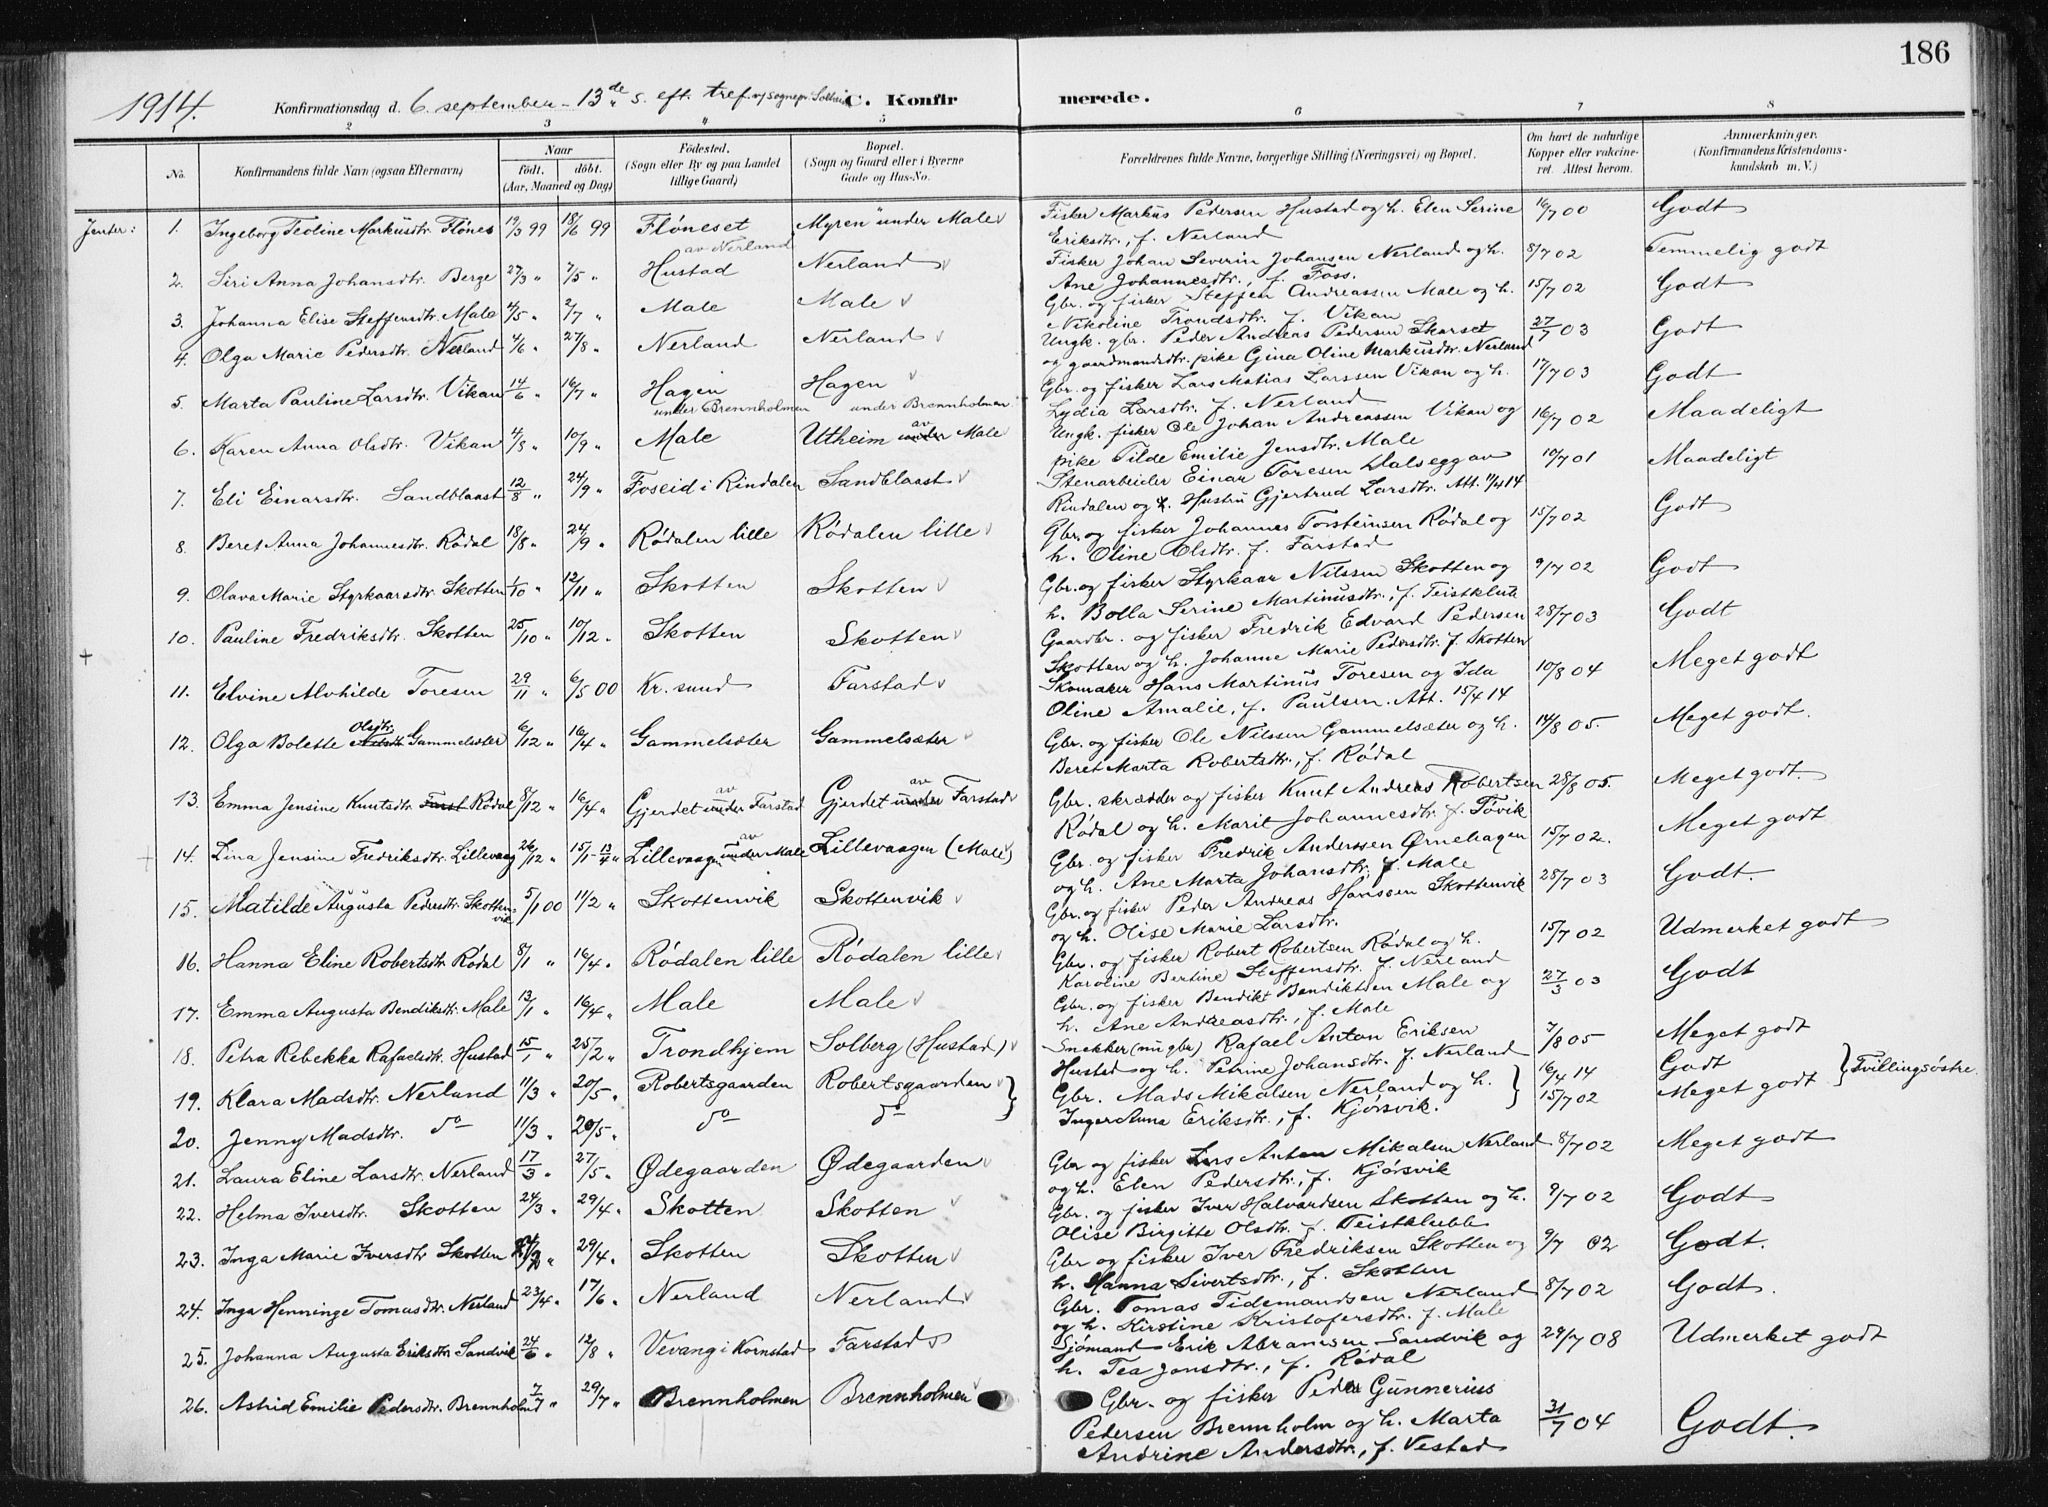 186
1914. Konfirmationsdag d. 6. september - 13de s. eft. tref. v/ sognepr. Solheim C. Konfirmerede.
2 3 4 5 6 7 8
No. Konfirmandens fulde Navn (ogsaa Efternavn)
Naar født. døbt. (Aar, Maaned og Dag)
Fødested. (Sogn eller By og paa Landet tillige Gaard)
Bopæl. (Sogn og Gaard eller i Byerne Gade og Hus-No.
Forældrenes fulde Navne, borgerlige Stilling (Næringsvei) og Bopæl.
Om havt de naturlige Kopper eller vakcineret. Attest herom.
Anmærkninger. (Konfirmandens Kristendomskundskab m. V.)
Jenter: 1. Ingeborg Teoline Markusdtr. Flönes 19/3 99 18/6 99 Flöneset av Nerland Myren under Male Fisker Markus Pedersen Hustad og h. Elen Serine Eriksdtr., f. Nerland 16/7 00 Godt
2. Siri Anna Johansdtr. Berge 27/3 " 7/5 " Hustad Nerland Fisker Johan Severin Johansen Nerland og h. Ane Johannesdtr., f. Foss. 8/7 02 Temmelig godt
3. Johanna Elise Steffensdtr. Male 4/5 " 2/7 " Male Male Gbr. og fisker Steffen Andreassen Male og h. Nikoline Trondsdtr. f. Vikan 15/7 02 Godt
4. Olga Marie Pedersdtr. Nerland 4/6 " 27/8 " Nerland Nerland Ungk. gbr. Peder Andreas Pedersen Skarset og gaardmandsdtr. pike Gina Oline Markusdtr. Nerland 27/7 03 Godt
5. Marta Pauline Larsdtr. Vikan 14/6 " 16/7 " Hagen under Brennholmen Hagen under Brennholmen Gbr. og fisker Lars Matias Larssen Vikan og h. Lydia Larsdtr. f. Nerland 17/7 03 Godt
6. Karen Anna Olsdtr. Vikan 4/8 " 10/9 " Male Utheim under av Male Ungk. fisker Ole Johan Andreassen Vikan og pike Tilde Emilie Jensdtr. Male 16/7 02 Maadeligt
7. Eli Einarsdtr. Sandblaast 12/8 " 24/9 " Foseid i Rindalen Sandblaast Stenarbeider Einar Toresen Dalsegg av Rindalen og h. Hustru Gjertrud Larsdtr. Att. 11/4 14 10/7 01 Maadeligt
8. Beret Anna Johannesdtr. Rödal 18/8 " 24/9 " Rödalen lille Rödalen lille Gbr. og fisker Johannes Torsteinsen Rödal og h. Oline Olsdtr. f. Farstad 15/7 02 Godt
9. Olava Marie Styrkaarsdtr. Skotten 1/10 " 12/11 " Skotten Skotten Gbr. og fisker Styrkaar Nilssen Skotten og h. Bolla Serine Martinusdtr., f. Teistklub 9/7 02 Godt
10. Pauline Fredriksdtr. Skotten 25/10 " 10/12 " Skotten Skotten Gaardbr. og fisker Fredrik Edvard Pedersen Skotten og h. Johanne Marie Pedersdtr. f. Skotten 28/7 03 Godt
11. Elvine Alvhilde Toresen 29/11 " 6/5 00 Kr. sund Farstad Skomaker Hans Martinus Toresen og Ida Oline Amalie, f. Paulsen. Att. 15/4 14 10/8 04 Meget godt
12. Olga Bolette Nilsdtr. Olsdtr. Gammelsæter 6/12 " 16/4 " Gammelsæter Gammelsæter Gbr. og fisker Ole Nilssen Gammelsæter og h. Beret Marta Robertsdtr., f. Rödal 14/8 05. Meget godt.
13. Emma Jensine Knutsdtr. Farst Rödal 8/12 " 16/4 " Gjerdet under av Farstad Gjerdet under av Farstad Gbr. skrædder og fisker Knut Andreas Robertsen Rödal og h. Marit Johannesdtr. f. Tövik 28/8 05. Meget godt.
14. Lina Jensine Fredriksdtr. Lillevaag 26/12 " 15/1 - 13/4 " Lillevaagen under av Male Lillevaagen (Male) Gbr. og fisker Fredrik Anderssen Ørnehagen og h. Ane Marta Johansdtr., f. Male 15/7 02. Meget godt
15. Matilde Augusta Pedersdtr. Skottenvik 5/1 00 11/2 " Skottenvik Skottenvik Gbr. og fisker Peder Andreas Hanssen Skottenvik og h. Olise Marie Larsdtr. 28/7 03 Godt.
16. Hanna Eline Robertsdtr. Rödal 8/1 " 16/4 " Rödalen lille Rödalen lille Gbr. og fisker Robert Robertsen Rödal og h. Karoline Bertine Steffensdtr. f. Nerland 15/7 02 Udmerket godt
17. Emma Augusta Bendiksdtr. Male 13/1 " 16/4 " Male Male Gbr. og fisker Bendikt Bendiktsen Male og h. Ane Andreasdtr., f. Male 27/3 03 Godt
18. Petra Rebekka Rafaelsdtr. Hustad 15/1 " 25/2 " Trondhjem Solberg (Hustad) Snekker (nu gbr) Rafael Anton Eriksen Hustad og h. Petrine Johansdtr. f. Nerland 7/8 05 Meget godt
19. Klara Madsdtr. Nerland 11/3 " 20/5 " Robertsgaarden Robertsgaarden Gbr. Mads Mikalsen Nerland og h. Inger Anna Eriksdtr., f. Kjörsvik. 16/4 14 Godt } Tvillingsöstre
20. Jenny Madsdtr. do 11/3 " 20/5 " do do 15/7 02 Meget godt
21. Laura Eline Larsdtr. Nerland 17/3 " 27/5 " Ødegaarden Ødegaarden Gbr og fisker Lars Anton Mikalsen Nerland og h. Elen Pedersdtr., f. Kjörsvik 8/7 02 Meget godt
22. Helma Iversdtr. Skotten 24/3 " 29/4 " Skotten Skotten Gbr. og fisker Iver Halvardsen Skotten og h. Olise Birgitte Olsdtr. f. Teistklubb 9/7 02 Godt
23. Inga Marie Iversdtr Skotten " 29/4 " Skotten Skotten Gbr og fisker Iver Fredriksen Skotten og h. Hanna Sivertsdtr., f. Skotten 9/7 02 Godt.
24. Inga Henninge Tomasdtr. Nerland 23/4 " 17/6 " Nerland Nerland Gbr. Tomas Tidemandsen Nerland og h. Kirstine Kristofersdtr. f. Male 8/7 02 Godt.
25. Johanna Augusta Eriksdtr. Sandvik 24/6 " 12/8 " Vevang i Kornstad Farstad Sjömand Erik Abramsen Sandvik og h. Tea Jonsdtr., f. Rödal 29/7 08 Udmerket godt
26. Astrid Emilie Pedersdtr. Brennholm 7/7 " 29/7 " Brennholmen Brennholmen Gbr. og fisker Peder Gunnerius Pedersen Brennholm og h. Marta Andrine Andersdtr., f. Vestad 31/7 04 Godt.